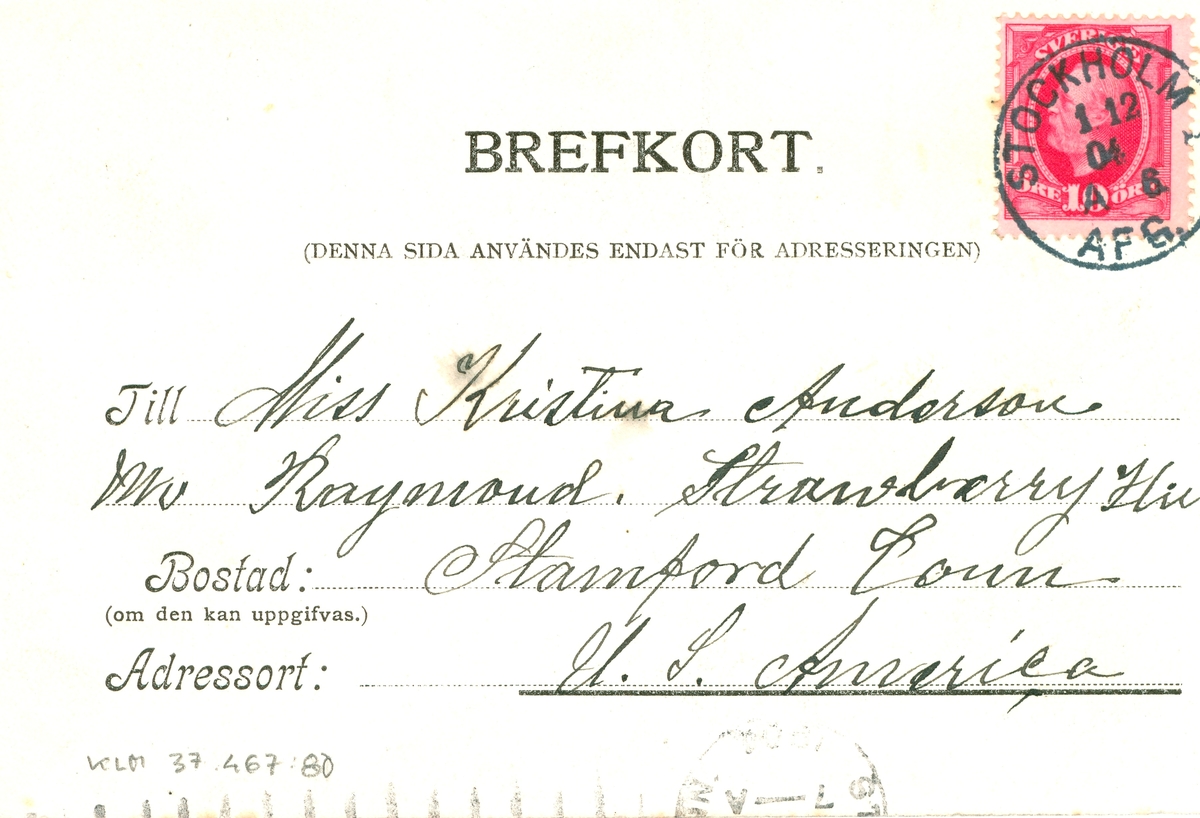 SVERIGE
STOCKHOLM 1
1 12
04
A 6
AFG.
ÖRE 10 ÖRE
BREFKORT.
(DENNA SIDA ANVÄNDES ENDAST FÖR ADRESSERINGEN)
Till Miss Kristina Anderson
Mr Raymond. Strawberry Hil
Bostad: Stamford Conn
(om den kan uppgifvas.)
Adressort: U. S. America
KLM 37.467:80